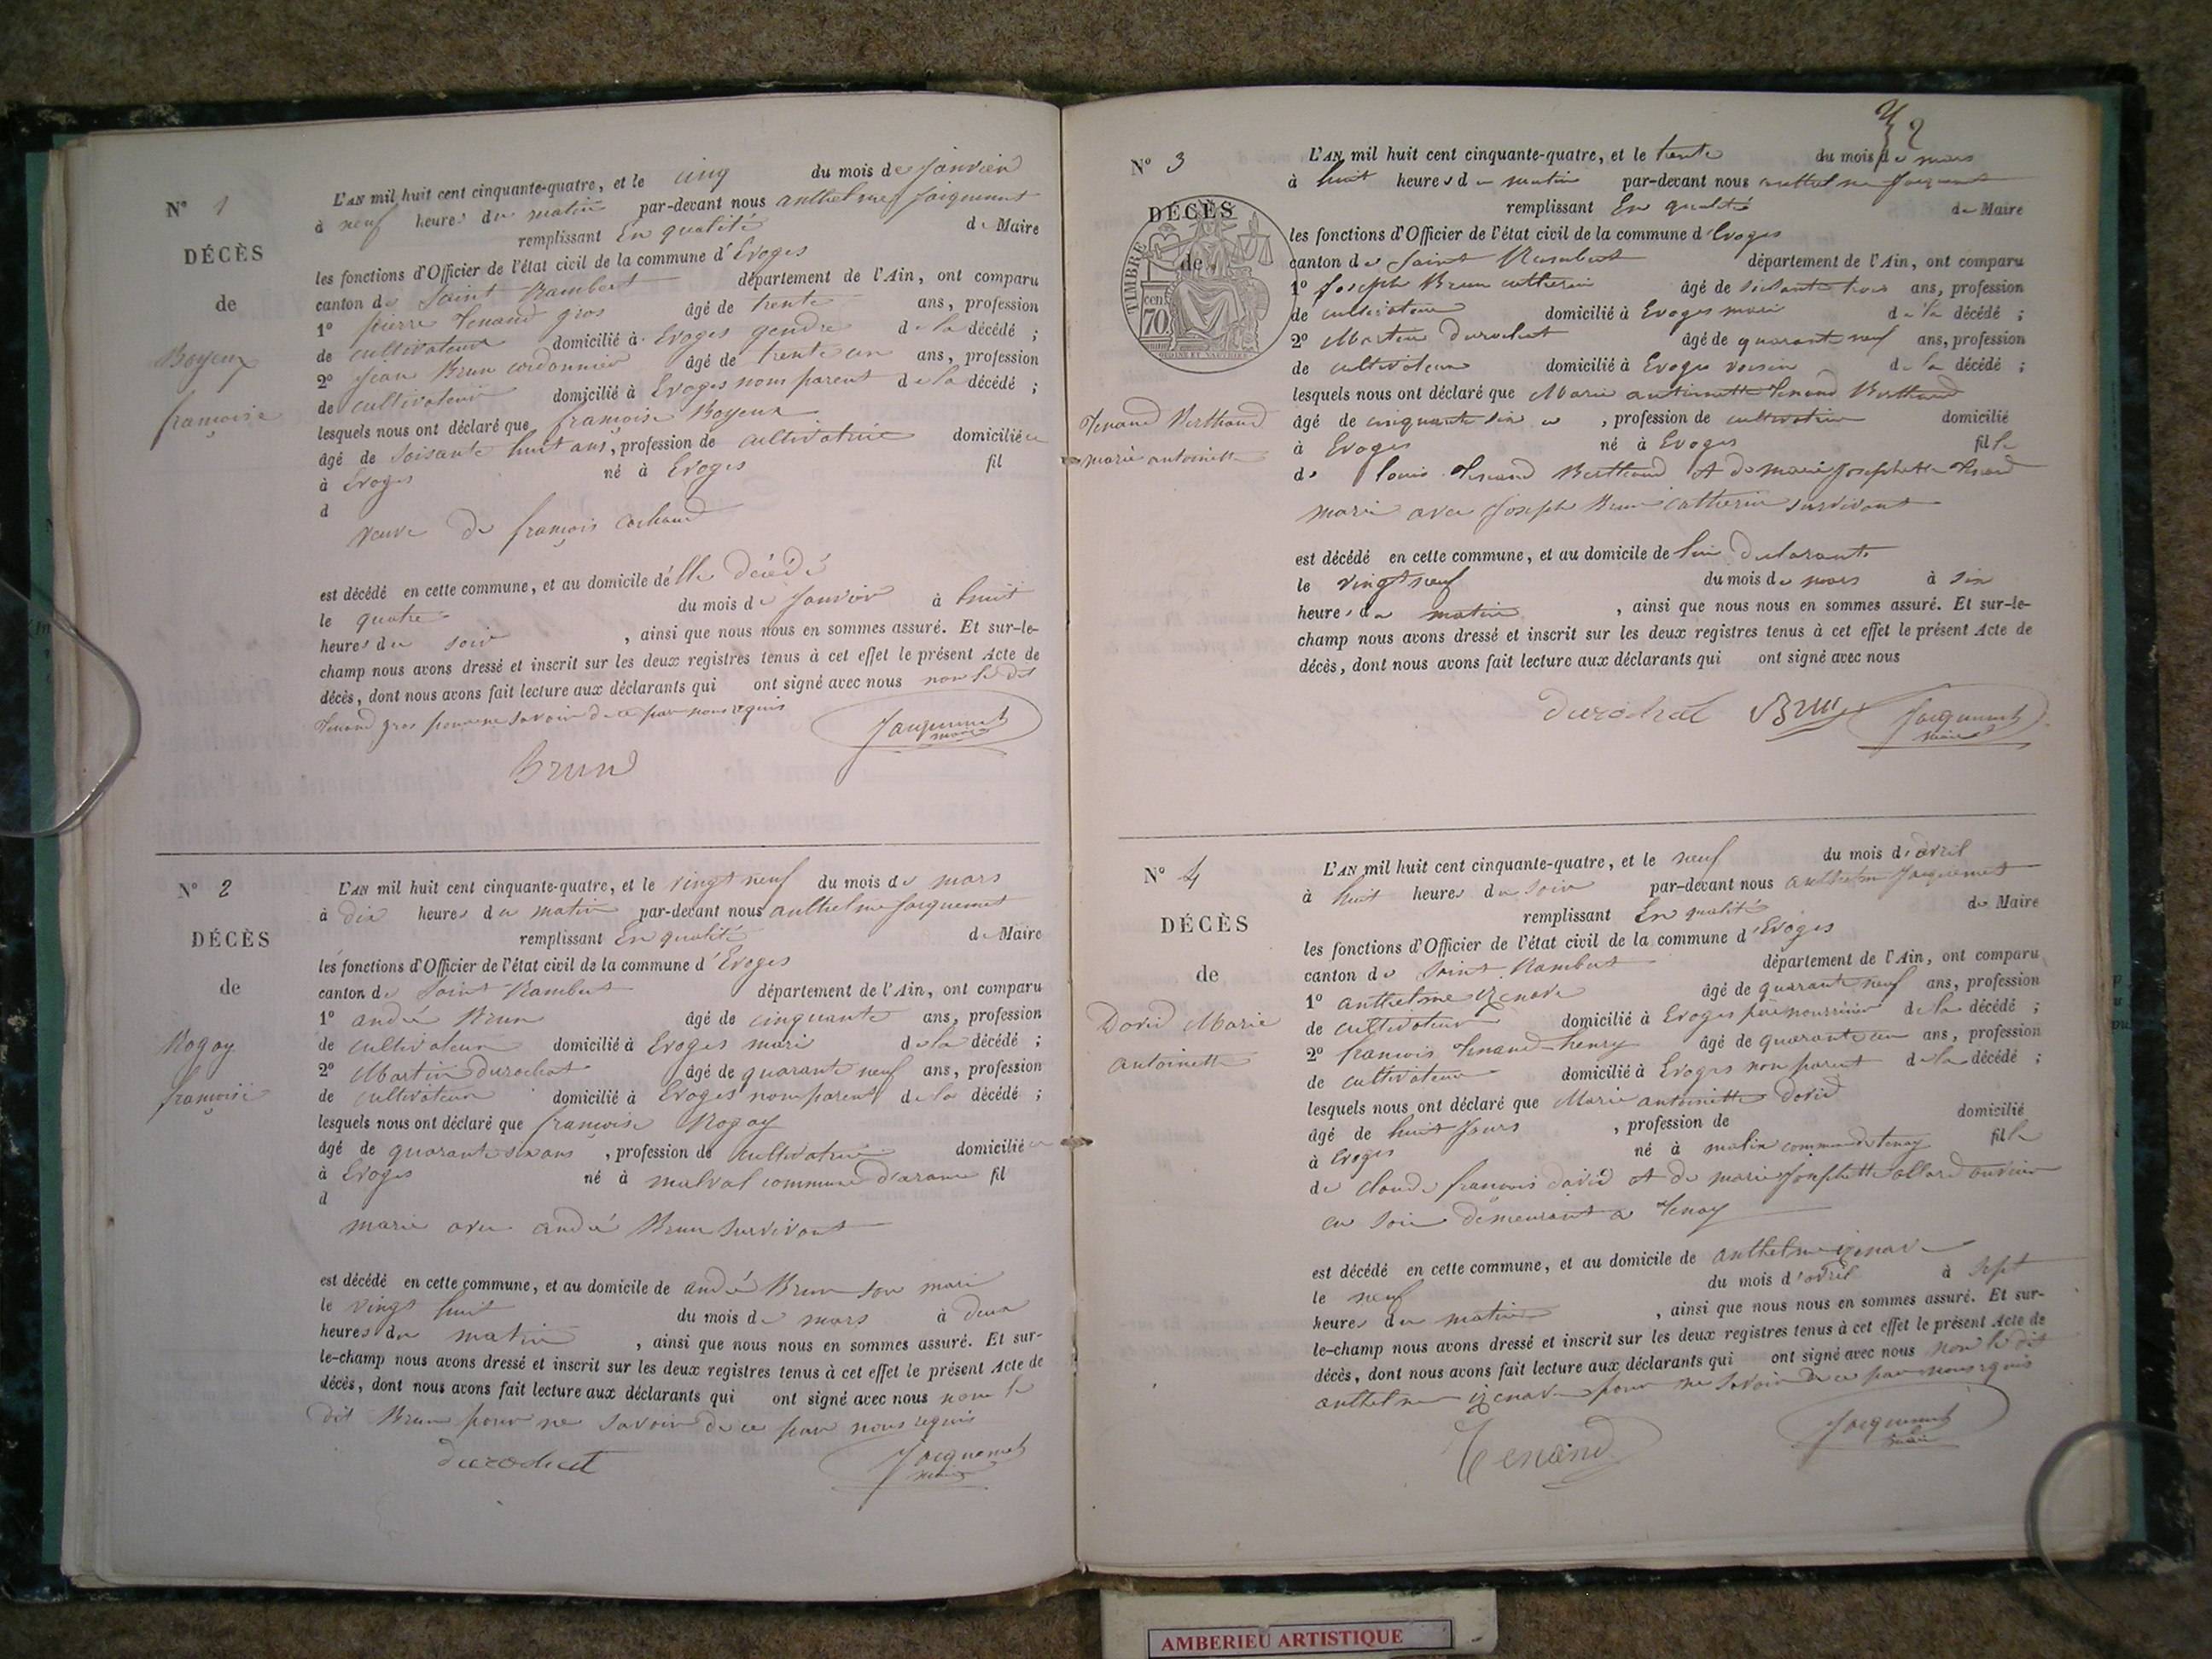 N° 1
DÉCÈS
de
Boyeux
françoise
L'AN mil huit cent cinquante-quatre, et le cinq du mois de janvier
à neuf heures du matin par-devant nous anthelme Jacquemet
remplissant En qualité de Maire
les fonctions d'Officier de l'état civil de la commune d'Evoges
canton de Saint Rambert département de l'Ain, ont comparu
1° pierre Tenand gros âgé de trente ans, profession
de cultivateur domicilié à Evoges gendre de la décédé ;
2° jean Brun cordonnier âgé de trente un ans, profession
de cultivateur domicilié à Evoges nom parent de la décédé ;
lesquels nous ont déclaré que françoise Boyeux
âgé de soisante huit ans, profession de cultivatrice domicilié
à Evoges né à Evoges fil
d
veuve de françois
est décédé en cette commune, et au domicile délle décédé
le quatre du mois de janvier à huit
heures du soir , ainsi que nous nous en sommes assuré. Et sur-le-
champ nous avons dressé et inscrit sur les deux registres tenus à cet effet le présent Acte de
décès, dont nous avons fait lecture aux déclarants qui ont signé avec nous non le dit
Tenand gros pour ne savoir de ce par nous requis
Jacquemet
maire
Brun
N° 2
DÉCÈS
de
Rogay
françoise
L'AN mil huit cent cinquante-quatre, et le vingt neuf du mois de mars
à dix heures du matin par-devant nous anthelme Jacquemet
remplissant En qualité de Maire
les fonctions d'Officier de l'état civil de la commune d'Evoges
canton de Saint Rambert département de l'Ain, ont comparu
1° andré Brun âgé de cinquante ans, profession
de cultivateur domicilié à Evoges mari de la décédé ;
2° Martin durochat âgé de quarante neuf ans, profession
de cultivateur domicilié à Evoges nom parent de la décédé ;
lesquels nous ont déclaré que françoise Rogay
âgé de quarante six ans , profession de cultivatrice domicilié
à Evoges né à malval commune d'arane fil
d
marié avec andré Brun survivant
est décédé en cette commune, et au domicile de andré Brun son mari
le vingt huit du mois de mars à deux
heures du matin , ainsi que nous nous en sommes assuré. Et sur-
le-champ nous avons dressé et inscrit sur les deux registres tenus à cet effet le présent Acte de
décès, dont nous avons fait lecture aux déclarants qui ont signé avec nous non le
dit Brun pour ne savoir de ce par nous requis
durochat
Jacquemet
maire
2
N° 3
DÉCÈS
de
TIMBRE
70 cent
Tenand Berthaud
marie antoinette
L'AN mil huit cent cinquante-quatre, et le trente du mois de mars
à huit heures du matin par-devant nous anthelme Jacquemet
remplissant En qualité de Maire
les fonctions d'Officier de l'état civil de la commune d'Evoges
canton de Saint Rambert département de l'Ain, ont comparu
1° Joseph Brun catherin âgé de soixante trois ans, profession
de cultivateur domicilié à Evoges mari de la décédé ;
2° Martin durochat âgé de quarante neuf ans, profession
de cultivateur domicilié à Evoges voisin de la décédé ;
lesquels nous ont déclaré que Marie antoinette Tenand Berthaud
âgé de cinquante six , profession de domicilié
à Evoges né à Evoges fille
de louis Tenand Berthaud et de marie Josephette Tenand
marié avec Joseph Brun catherin survivant
est décédé en cette commune, et au domicile de l'un declarants
le vingt neuf du mois de mars à six
heures du matin , ainsi que nous nous en sommes assuré. Et sur-le-
champ nous avons dressé et inscrit sur les deux registres tenus à cet effet le présent Acte de
décès, dont nous avons fait lecture aux déclarants qui ont signé avec nous
durochat Brun Jacquemet
maire
N° 4
DÉCÈS
de
David Marie
antoinette
L'AN mil huit cent cinquante-quatre, et le neuf du mois d'avril
à huit heures du soir par-devant nous anthelme Jacquemet
remplissant En qualité de Maire
les fonctions d'Officier de l'état civil de la commune d'Evoges
canton de Saint Rambert département de l'Ain, ont comparu
1° anthelme âgé de quarante neuf ans, profession
de cultivateur domicilié à Evoges père nourricier de la décédé ;
2° francois Tenand-henry âgé de quarante un ans, profession
de cultivateur domicilié à Evoges non parent de la décédé ;
lesquels nous ont déclaré que Marie antoinette david
âgé de huit jours , profession de domicilié
à Evoges né à malix commune de tenay fille
de claude francois david et de marie Josephette allard ouvrier
en soie demeurant a Tenay
est décédé en cette commune, et au domicile de anthelme
le neuf du mois d'avril à sept
heures du matin , ainsi que nous nous en sommes assuré. Et sur-
le-champ nous avons dressé et inscrit sur les deux registres tenus à cet effet le présent Acte de
décès, dont nous avons fait lecture aux déclarants qui ont signé avec nous non le dit
anthelme pour ne savoir de ce par nous requis
Tenand
Jacquemet
maire
AMBERIEU ARTISTIQUE